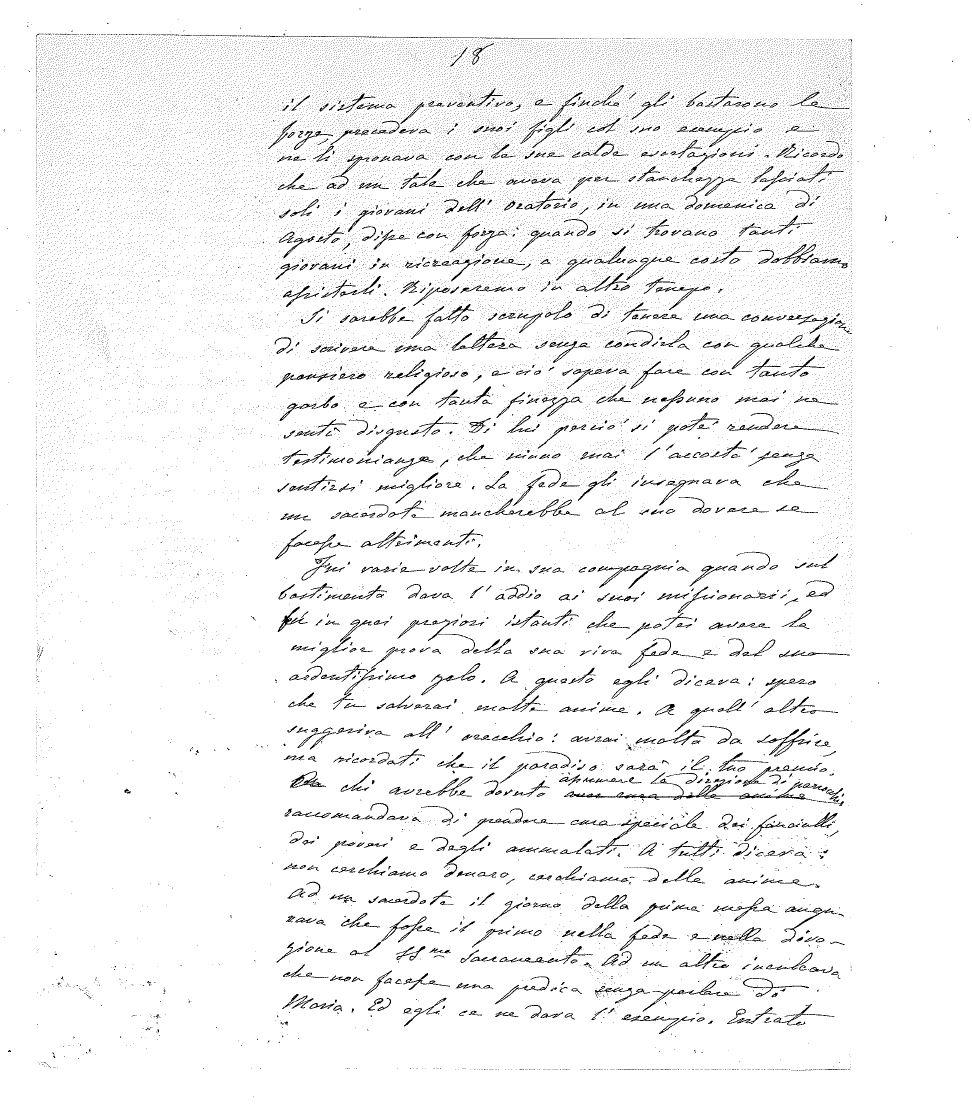 18
il sistema preventivo, e finché gli bastarono le
forze, precedeva i suoi figli col suo esempio e
ne li spronava con le sue calde esortazioni. Ricordo
che ad un tale che aveva per stanchezza lasciati
soli i giovani dell' oratorio, in una domenica di
Agosto, disse con forza: quando si trovano tanti
giovani in ricreazione, a qualunque costo dobbiamo
assisterli. Riposeremo in altro tempo.
Si sarebbe fatto scrupolo di tenere una conversazione
di scrivere una lettera senza condirla con qualche
pensiero religioso, e ciò sapeva fare con tanto
garbo e con tanta finezza che nessuno mai ne
sentì disgusto. Di lui perciò si poté rendere
testimonianza, che niuno mai l'accostò senza
sentirsi migliore. La fede gli insegnava che
un sacerdote mancherebbe al suo dovere se
facesse altrimenti.
Fui varie volte in sua compagnia quando sul
bastimento dava l'addio ai suoi missionarii, ed
fu in quei preziosi istanti che potei avere la
miglior prova della sua viva fede e del suo
ardentissimo zelo. A questo egli diceva: spero
che tu salverai molte anime. A quell'altro
suggeriva all' orecchio: avrai molto da soffrire,
ma ricordati che il paradiso sarà il tuo premio.
assumere la direzione di parrocchie
chi avrebbe dovuto aver cura delle anime
raccomandava di prendere cura speciale dei fanciulli,
dei poveri e degli ammalati. A tutti diceva:
non cerchiamo denaro, cerchiamo delle anime.
Ad un sacerdote il giorno della prima messa augu-
rava che fosse il primo nella fede e nella divo-
zione al SS.mo Sacramento. Ad un altro inculcava
che non facesse una predica senza parlare di
Maria. Ed egli ce ne dava l'esempio. Entrato